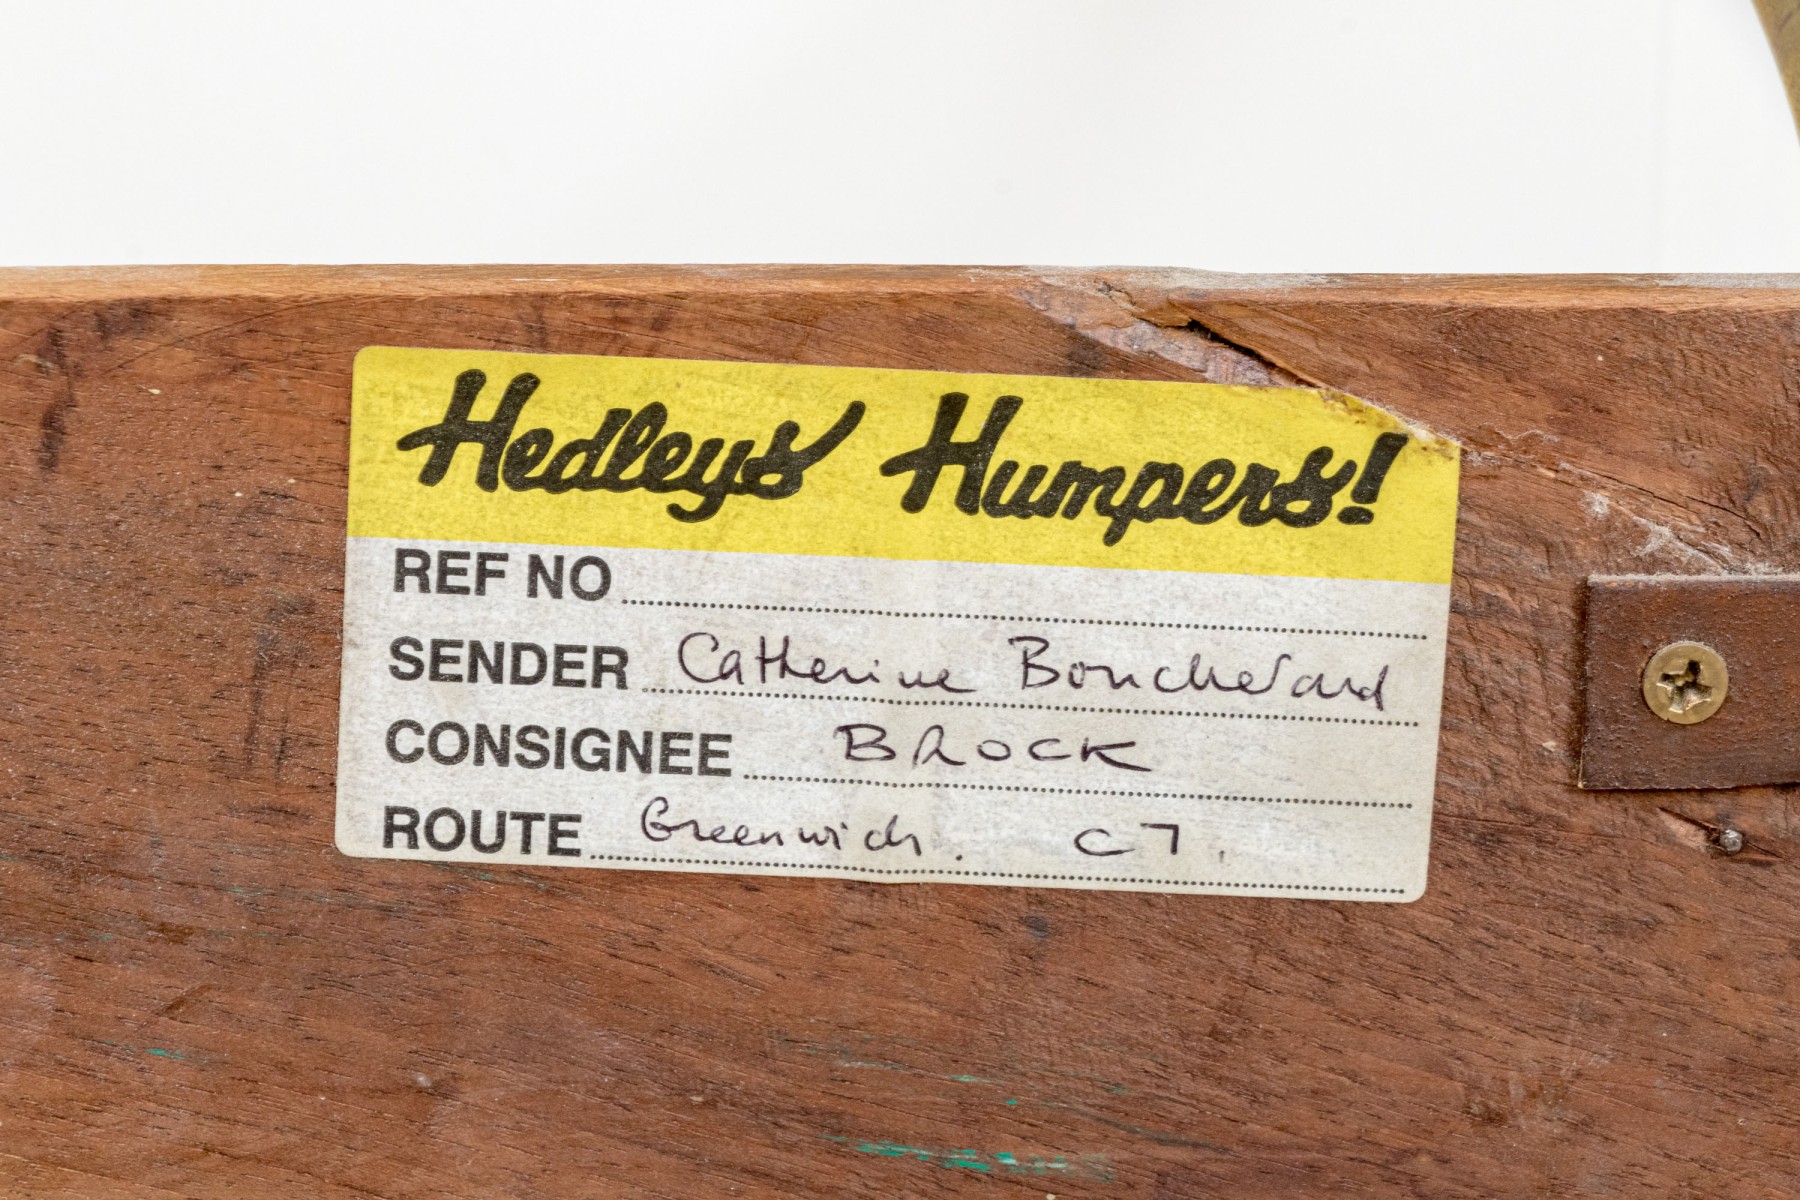 Hedleys Humpers!
REF NO
SENDER Catherine Boucherard
CONSIGNEE BROCK
ROUTE Greenwich. CT.